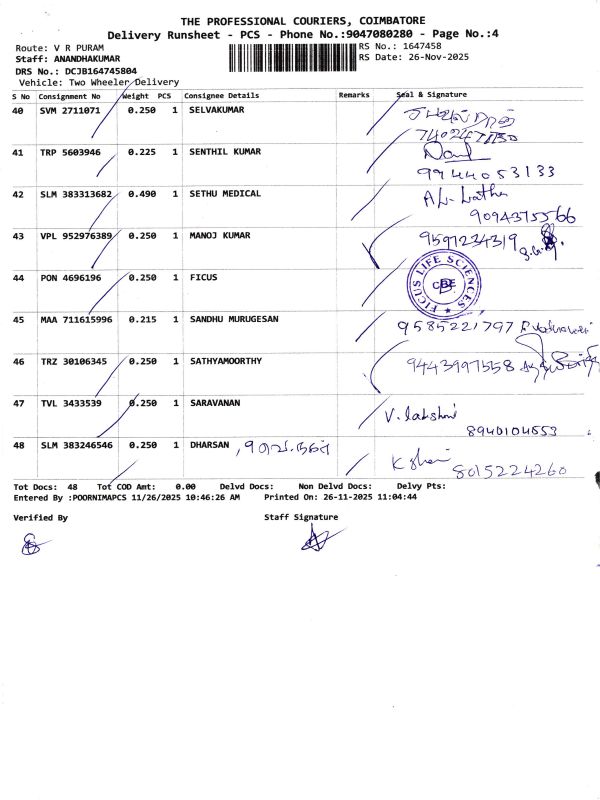 THE PROFESSIONAL COURIERS, COIMBATORE
Delivery Runsheet - PCS - Phone No.:9047080280 - Page No.:4
Route: V R PURAM
RS No.: 1647458
Staff: ANANDHAKUMAR
RS Date: 26-Nov-2025
DRS No.: DCJB164745804
Vehicle: Two Wheeler Delivery
S No Consignment No Weight PCS Consignee Details Remarks Seal & Signature
40 SVM 2711071 0.250 1 SELVAKUMAR
41 TRP 5603946 0.225 1 SENTHIL KUMAR
9944053133
42 SLM 383313682 0.490 1 SETHU MEDICAL
9094375566
43 VPL 952976389 0.250 1 MANOJ KUMAR 9597234319
44 PON 4696196 0.250 1 FICUS FICUS LIFE SCIENCES CBE
45 MAA 711615996 0.215 1 SANDHU MURUGESAN 9585221797
46 TRZ 30106345 0.250 1 SATHYAMOORTHY 9443997558
47 TVL 3433539 0.250 1 SARAVANAN V. lakshmi
8940104553
48 SLM 383246546 0.250 1 DHARSAN 8015224260
Tot Docs: 48 Tot COD Amt: 0.00 Delvd Docs: Non Delvd Docs: Delvy Pts:
Entered By :POORNIMAPCS 11/26/2025 10:46:26 AM Printed On: 26-11-2025 11:04:44
Verified By Staff Signature